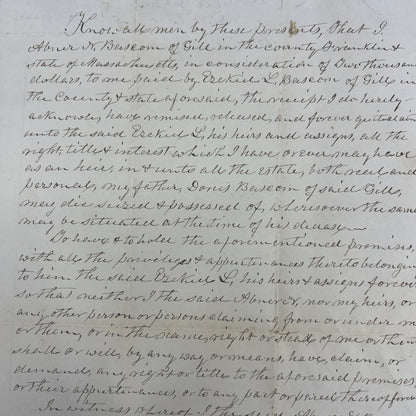 Know all men by these presents, that I,
Abner N. Bascom of Gill in the county Franklin &
state of Massachusetts, in consideration of Two thousand
dollars, to me paid by Ezekiel L. Bascom of Gill in
the County & state aforesaid, the receipt I do hereby
acknowle, have remised, released, and forever quitclaim
unto the said Ezekiel L, his heirs and assigns, all the
right, title & interest which I have or ever may have
as an heir, in & unto all the Estate, both real and
personal, my father, Dorus Bascom of said Gill,
may die seized & possessed of, wheresoever the same
may be situated at the time of his decease.
To have & to hold the aforementioned premises,
with all the privileges & appurtenances thereto belonging
to him the said Ezekiel L, his heirs & assigns forever
so that neither I the said Abner N, nor my heirs, or
any other person or persons claiming from or under me
or them, or in the name, right or stead of me or them
shall or will, by any way or means, have, claim, or
demand, any right or title to the aforesaid premises
or their appurtenances, or to any part or parcel thereof forever
In witness whereof I the said